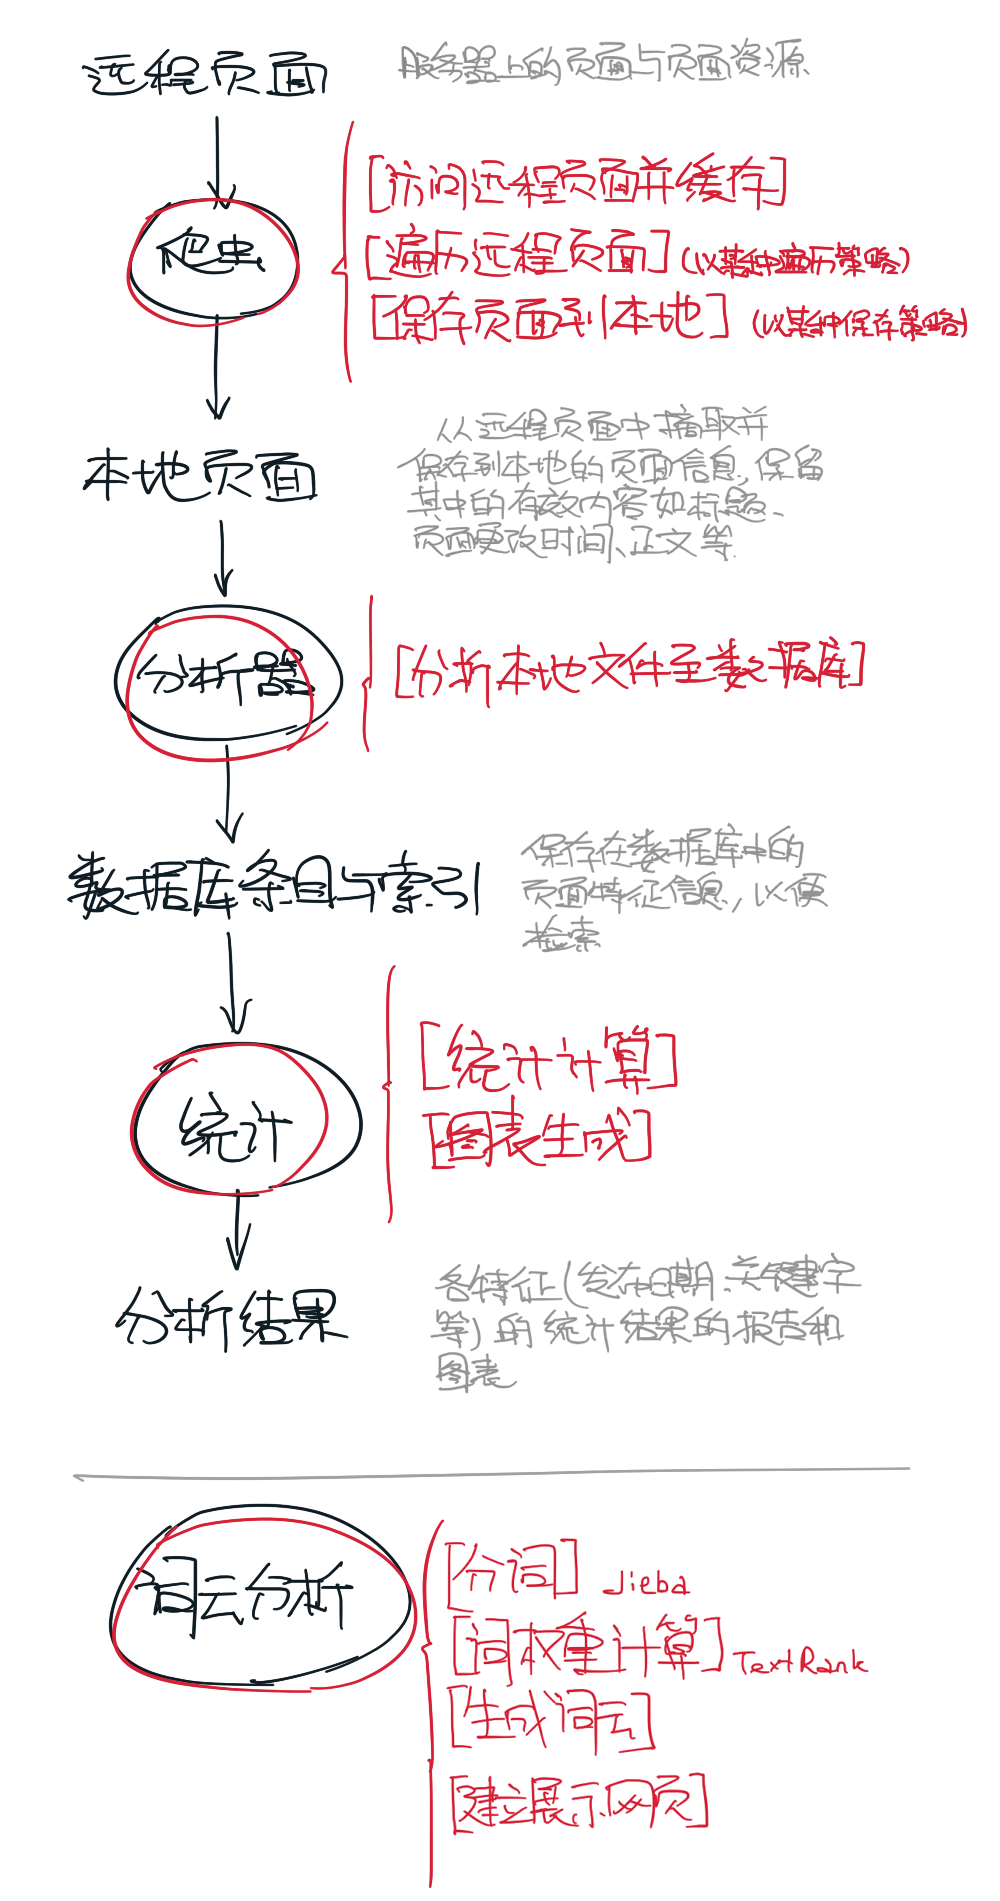 远程页面
服务器上的页面与页面资源
爬虫
[访问远程页面并缓存]
[遍历远程页面] (以某种遍历策略)
[保存页面到本地] (以某种保存策略)
本地页面
从远程页面中摘取并
保存到本地的页面信息,保留
其中的有效内容如标题、
页面更改时间、正文等.
分析器
[分析本地文件至数据库]
数据库条目与索引
保存在数据库中的
页面特征信息,以便
检索
统计
[统计计算]
[图表生成]
分析结果
各特征(发布日期、关键字
等)的统计结果的报告和
图表
词云分析
[分词] Jieba
[词权重计算] TextRank
[生成词云]
[建立展示网页]